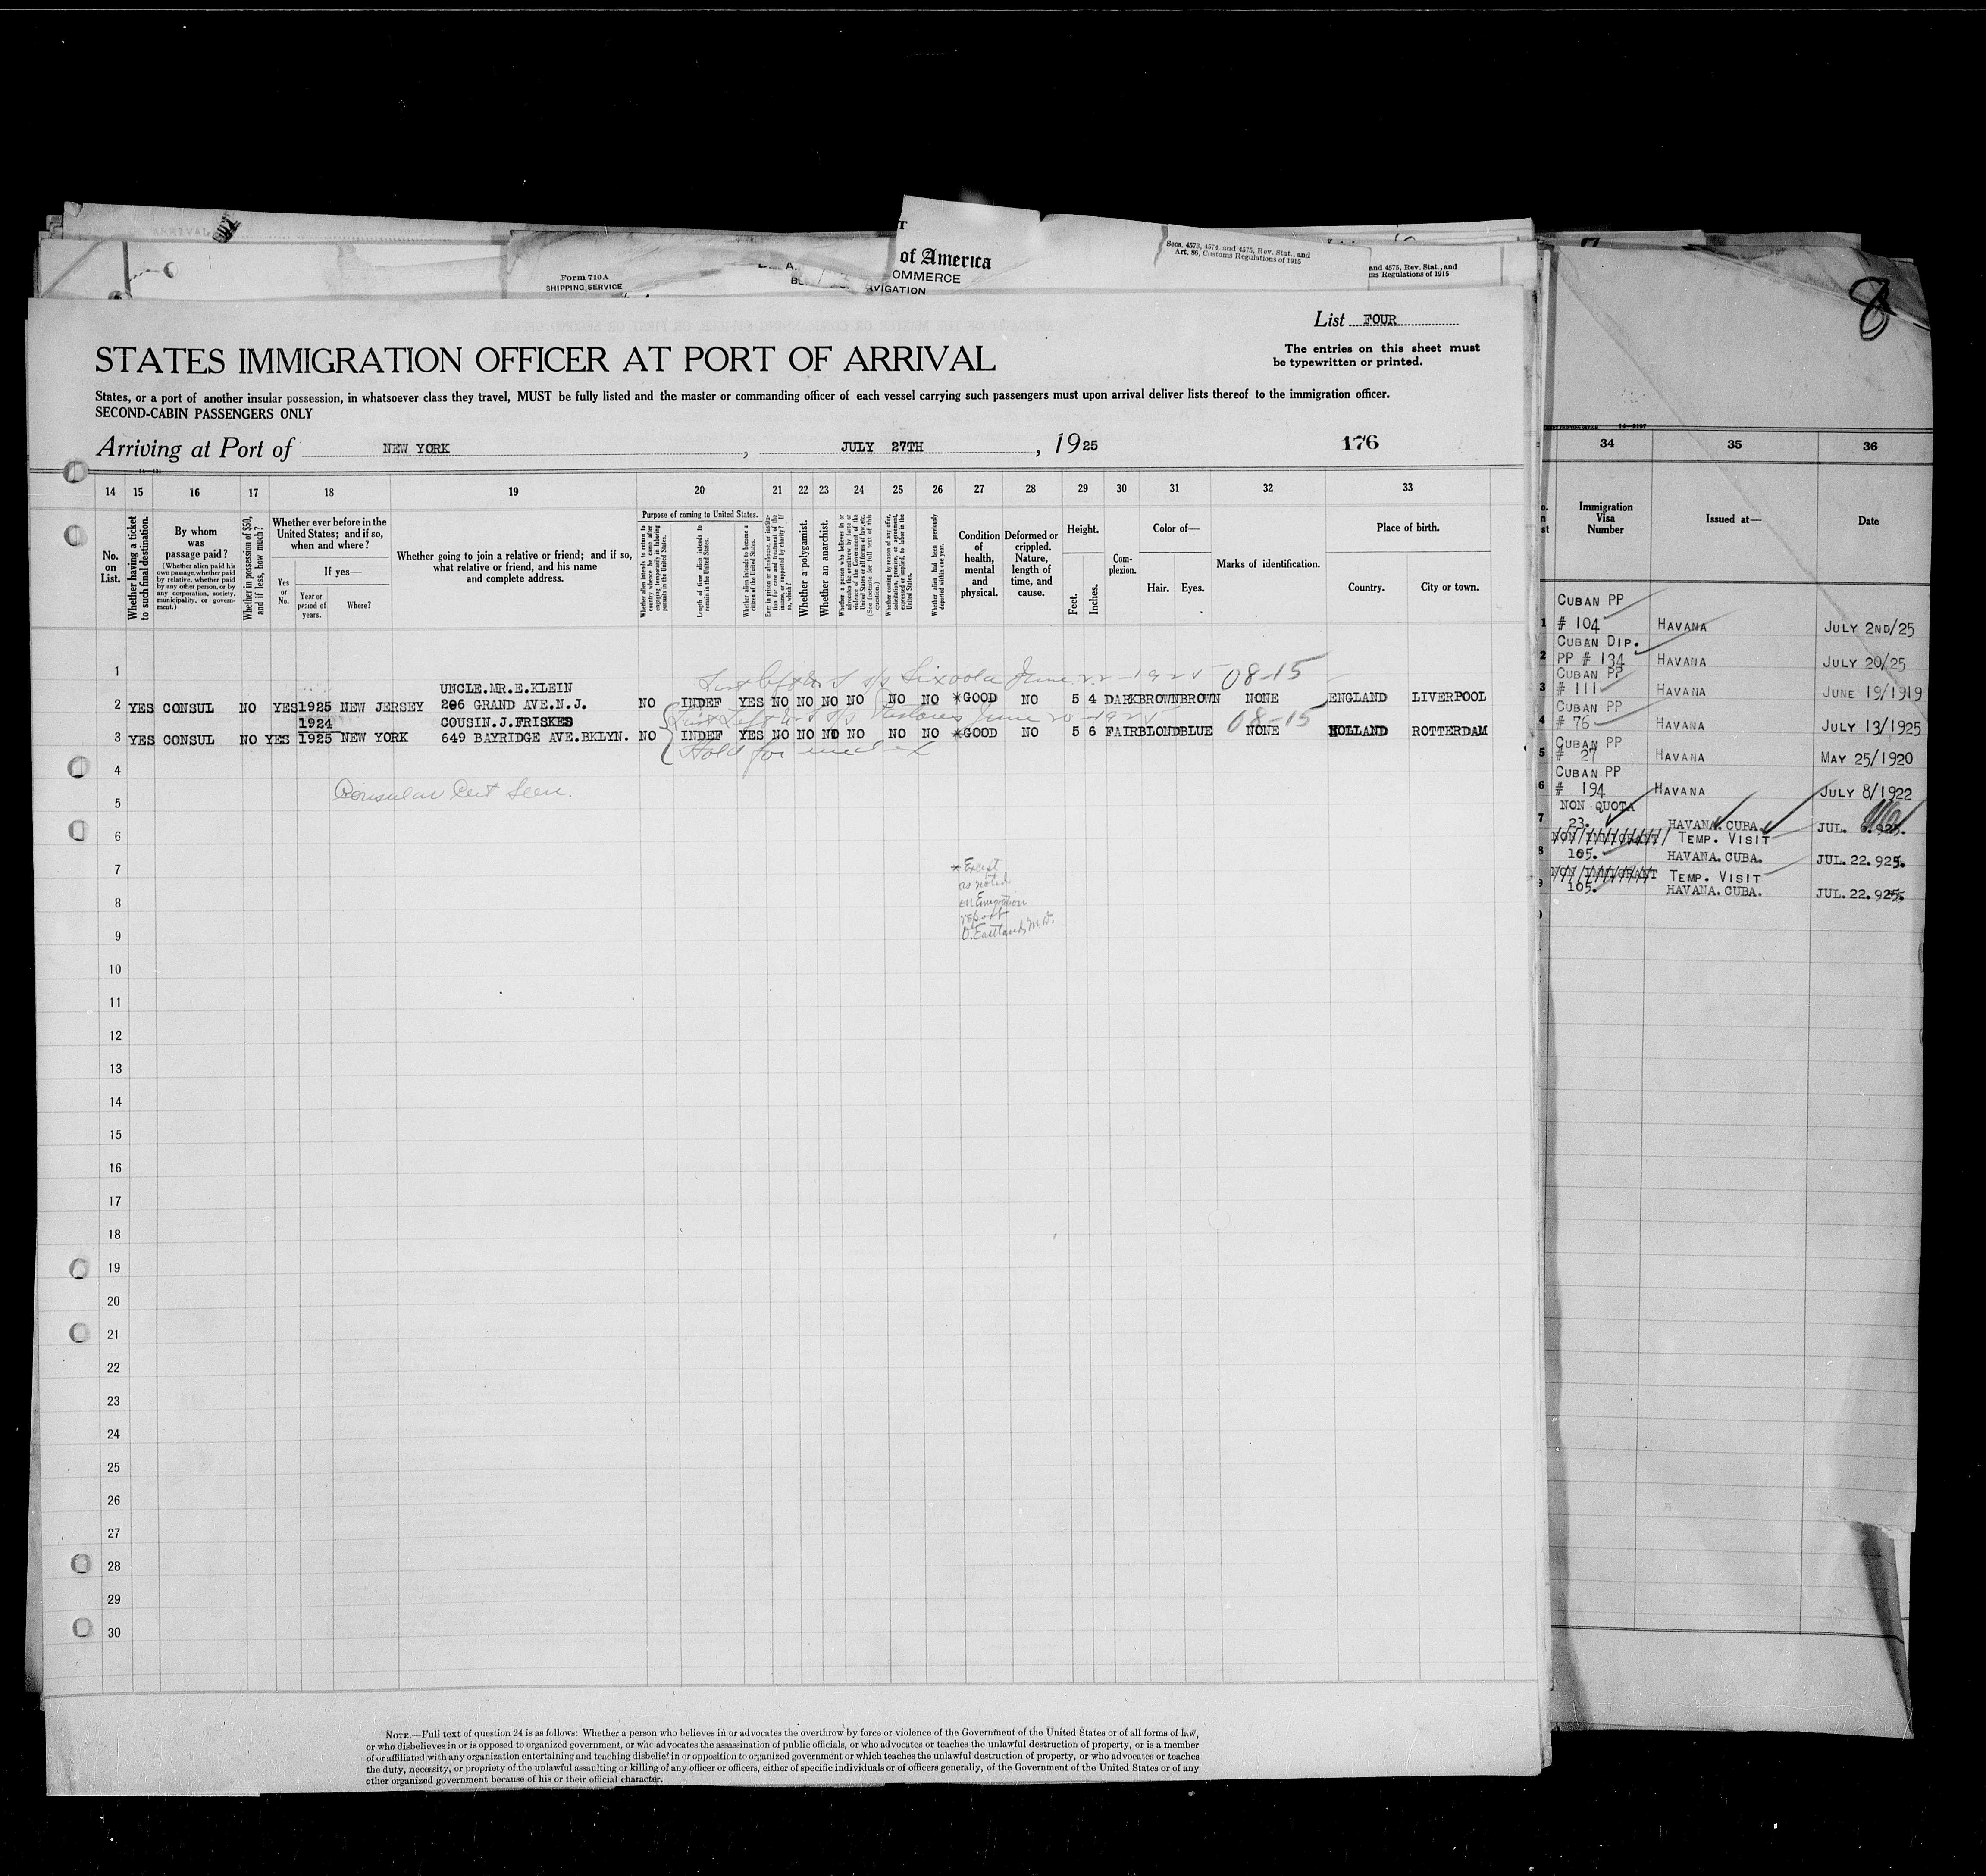 of America
OMMERCE
VIGATION
Form 710A
SHIPPING SERVICE
Secs. 4573, 4574, and 4575, Rev. Stat., and
Art. 86, Customs Regulations of 1915
and 4575, Rev. Stat., and
ms Regulations of 1915
8
List FOUR
STATES IMMIGRATION OFFICER AT PORT OF ARRIVAL
The entries on this sheet must
be typewritten or printed.
States, or a port of another insular possession, in whatsoever class they travel, MUST be fully listed and the master or commanding officer of each vessel carrying such passengers must upon arrival deliver lists thereof to the immigration officer.
SECOND-CABIN PASSENGERS ONLY
Arriving at Port of NEW YORK, JULY 27TH, 1925 176
14 15 16 17 18 19 20 21 22 23 24 25 26 27 28 29 30 31 32 33
No. on List.
Whether having a ticket to such final destination.
By whom was passage paid?
(Whether alien paid his own passage, whether paid by relative, whether paid by any other person, or by any corporation, society, municipality, or government.)
Whether in possession of $50, and if less, how much?
Whether ever before in the United States; and if so, when and where?
Yes or No.
If yes—
Year or period of years.
Where?
Whether going to join a relative or friend; and if so, what relative or friend, and his name and complete address.
Purpose of coming to United States.
Whether alien intends to return to country whence he came after engaging temporarily in laboring pursuits in the United States.
Length of time alien intends to remain in the United States.
Whether alien intends to become a citizen of the United States.
Ever in prison or almshouse, or institution for care and treatment of the insane, or supported by charity? If so, which?
Whether a polygamist.
Whether an anarchist.
Whether a person who believes in or advocates the overthrow by force or violence of the Government of the United States or all forms of law, etc. (See footnote for full text of this question.)
Whether coming by reason of any offer, solicitation, promise, or agreement, expressed or implied, to labor in the United States.
Whether alien had been previously deported within one year.
Condition of health, mental and physical.
Deformed or crippled. Nature, length of time, and cause.
Height.
Feet.
Inches.
Complexion.
Color of—
Hair. Eyes.
Marks of identification.
Place of birth.
Country. City or town.
1
June 22-1925 08-15
UNCLE.MR.E.KLEIN
2 YES CONSUL NO YES 1925 NEW JERSEY 206 GRAND AVE.N.J. NO INDEF YES NO NO NO NO NO NO *GOOD NO 5 4 DARK BROWN BROWN NONE ENGLAND LIVERPOOL
1924 COUSIN.J.FRISKES
08-15
3 YES CONSUL NO YES 1925 NEW YORK 649 BAYRIDGE AVE.BKLYN. NO INDEF YES NO NO NO NO NO NO *GOOD NO 5 6 FAIR BLOND BLUE NONE HOLLAND ROTTERDAM
Hold for
4
Consular Cert Seen.
5
6
7
* Except
as noted
8
on Emigration
report
9
O. Eastland, M.D.
10
11
12
13
14
15
16
17
18
19
20
21
22
23
24
25
26
27
28
29
30
NOTE.—Full text of question 24 is as follows: Whether a person who believes in or advocates the overthrow by force or violence of the Government of the United States or of all forms of law,
or who disbelieves in or is opposed to organized government, or who advocates the assassination of public officials, or who advocates or teaches the unlawful destruction of property, or is a member
of or affiliated with any organization entertaining and teaching disbelief in or opposition to organized government or which teaches the unlawful destruction of property, or who advocates or teaches
the duty, necessity, or propriety of the unlawful assaulting or killing of any officer or officers, either of specific individuals or of officers generally, of the Government of the United States or of any
other organized government because of his or their official character.
34 35 36
Immigration Visa Number
Issued at—
Date
CUBAN PP
1 # 104 HAVANA JULY 2ND/25
CUBAN DIP.
2 PP # 134 HAVANA JULY 20/25
CUBAN PP
3 # 111 HAVANA JUNE 19/1919
CUBAN PP
4 # 76 HAVANA JULY 13/1925
CUBAN PP
5 # 27 HAVANA MAY 25/1920
CUBAN PP
6 # 194 HAVANA JULY 8/1922
NON QUOTA
7 23. HAVANA. CUBA. JUL. 6.925.
NON IMMIGRANT TEMP. VISIT
8 105. HAVANA. CUBA. JUL. 22. 925.
NON IMMIGRANT TEMP. VISIT
9 105. HAVANA. CUBA. JUL. 22. 925.